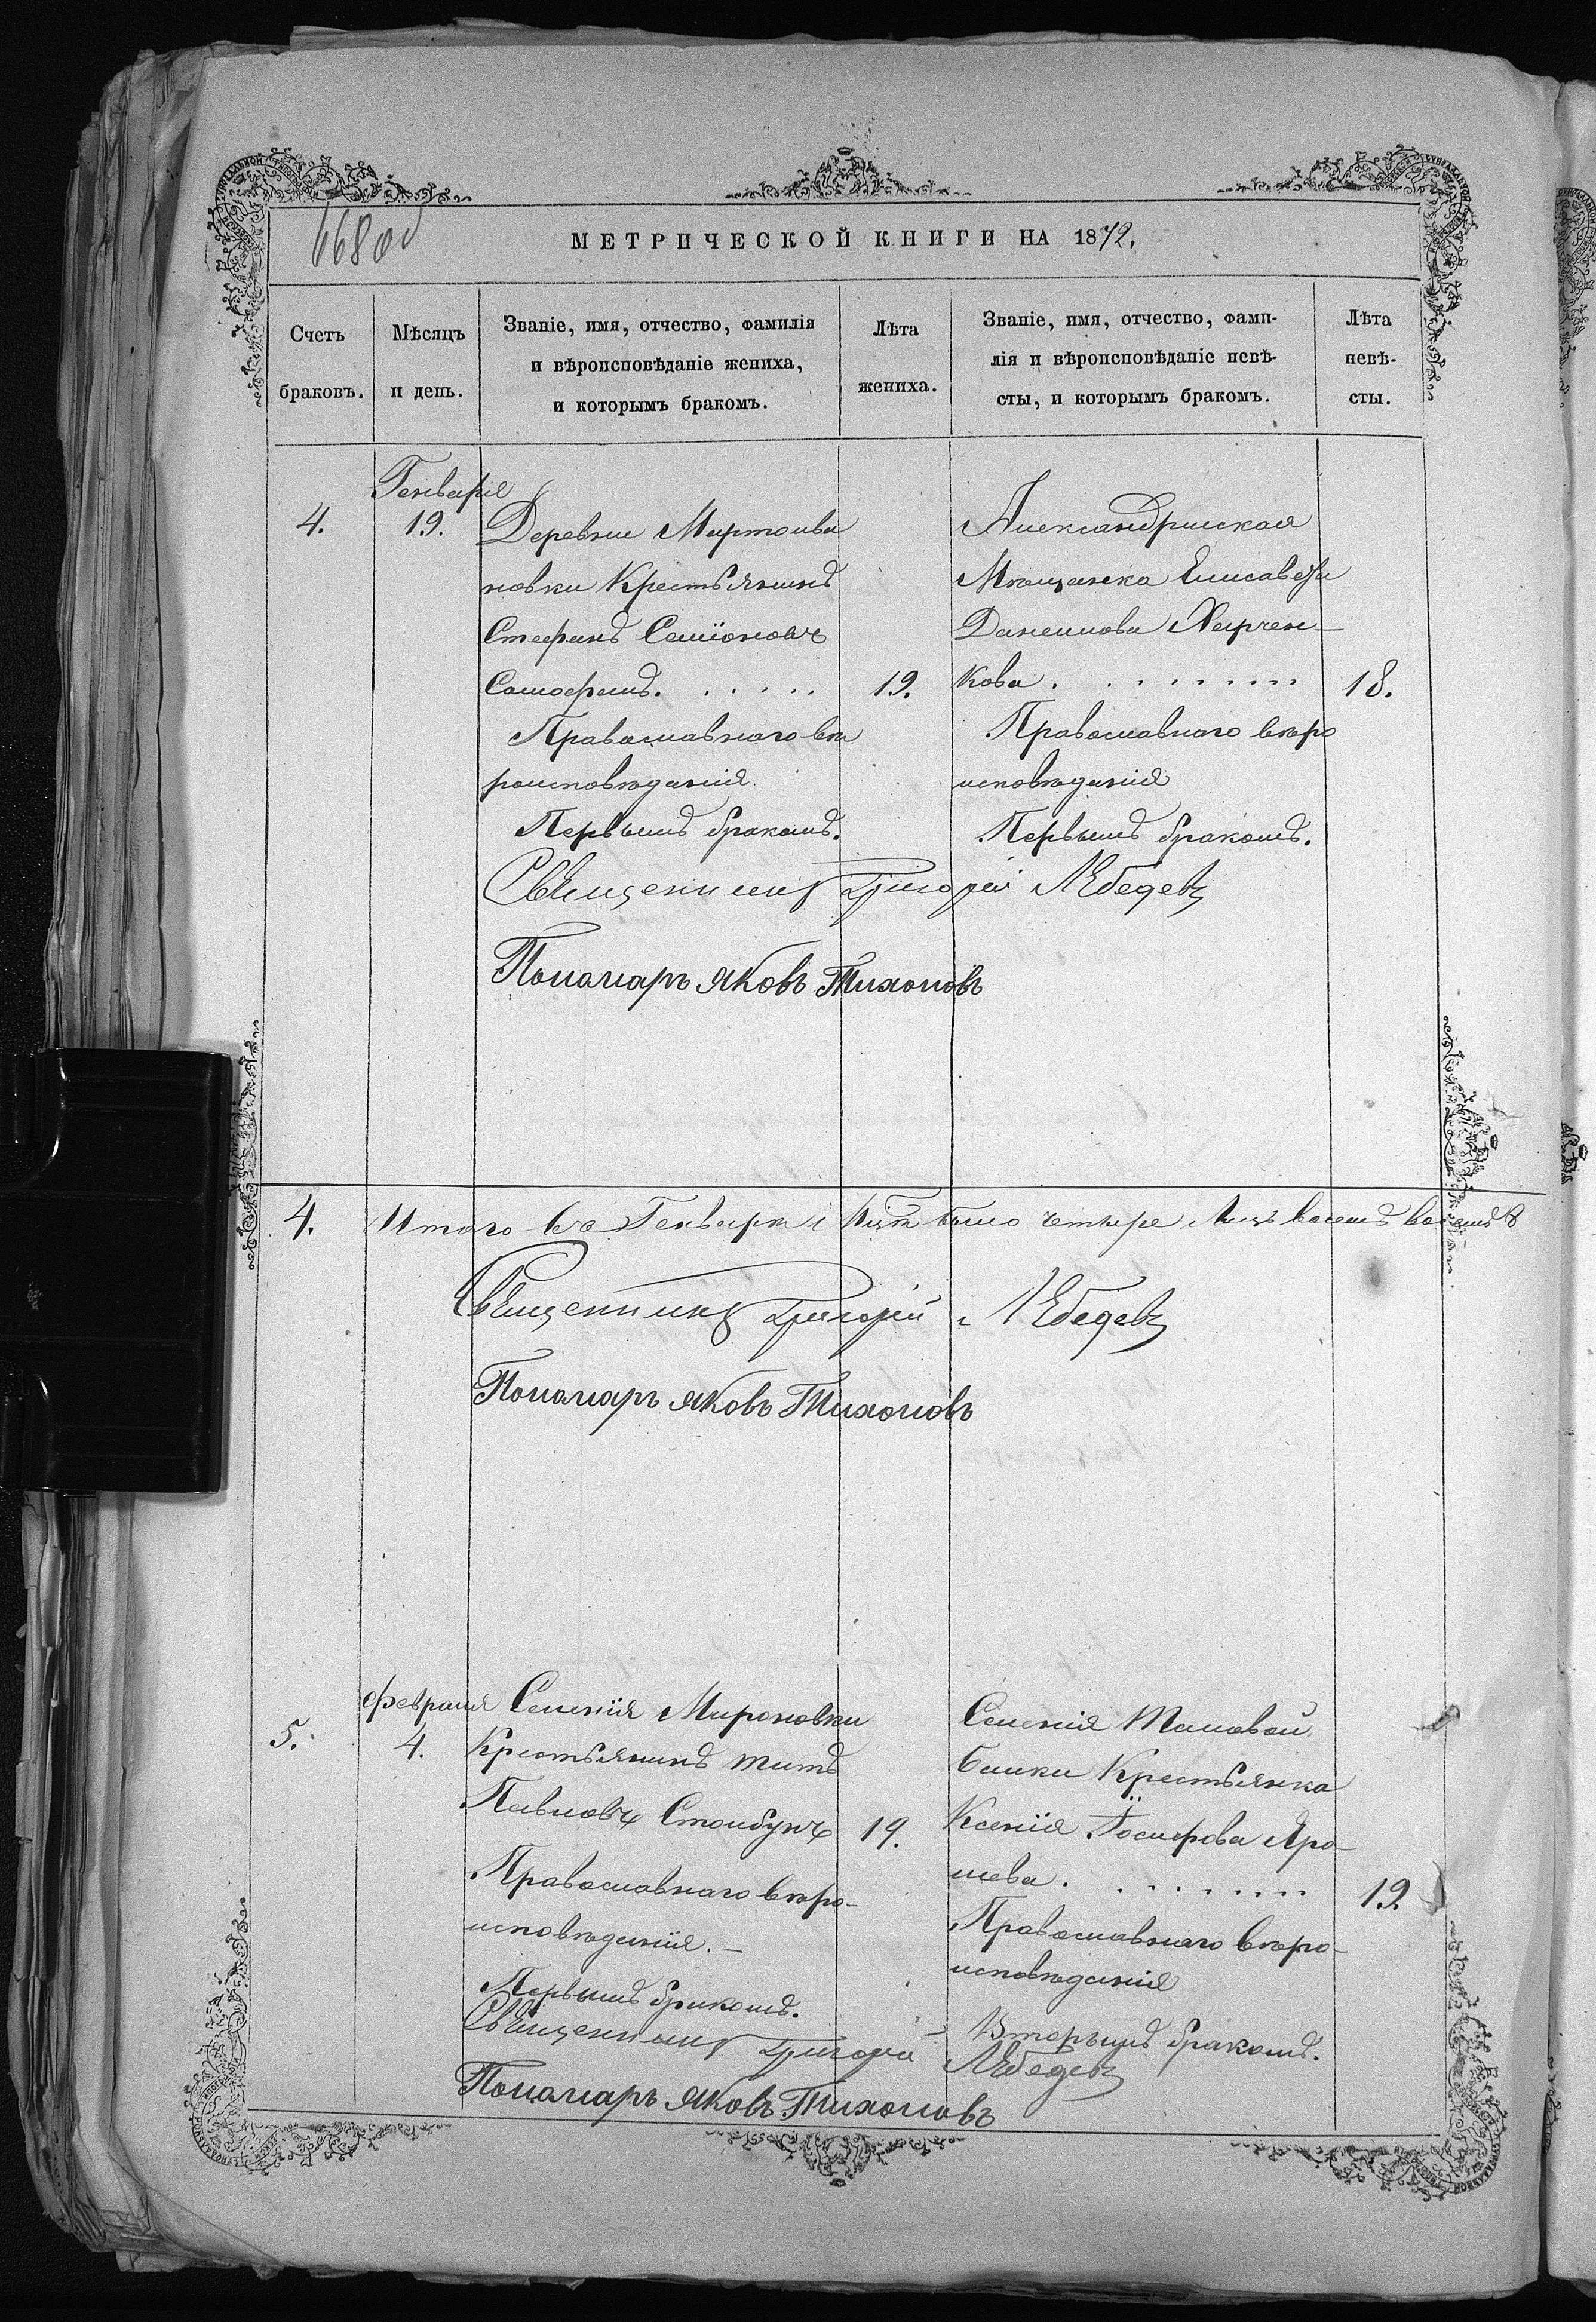 668 об
МЕТРИЧЕСКОЙ КНИГИ НА 1872.
Счетъ браковъ.
Мѣсяцъ и день.
Званіе, имя, отчество, фамилія
и вѣроисповѣданіе жениха,
и которымъ бракомъ.
Лѣта жениха.
Званіе, имя, отчество, фами-
лія и вѣроисповѣданіе невѣ-
сты, и которымъ бракомъ.
Лѣта невѣ-
сты.
4.
Генваря
19.
Деревни Мартоива
новки Крестьянинъ
Стефанъ Семіоновъ
Самофалъ. . . . . .
19.
Православнаго вѣ
роисповѣданія
Первымъ бракомъ.
Александрийская
Мѣщанка Елисавета
Данилова Харчен-
кова . . . . . . . . .
18.
Православнаго вѣро
исповѣданія
Первымъ бракомъ.
Священникъ Григорій Лебедевъ
Пономарь Яковъ Тихоновъ
4. Итого въ Генварѣ было четыре лицъ восемь восемь 8
Священникъ Григорій Лебедевъ
Пономарь Яковъ Тихоновъ
5.
Февраля
4.
Селенія Мироновки
Крестьянинъ Титъ
Павловъ Стоибунъ
19.
Православнаго вѣро-
исповѣданія. –
Первымъ бракомъ.
Селенія Тановой
Балки Крестьянка
Ксенія Іосифова Яро
шева . . . . . . . . .
19.
Православнаго вѣро-
исповѣданія
Вторымъ бракомъ.
Священникъ Григорій Лебедевъ
Пономарь Яковъ Тихоновъ